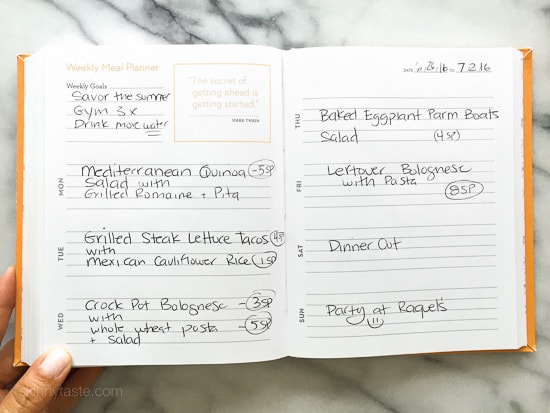 Weekly Meal Planner
Weekly Goals
Savor the summer
Gym 3x
Drink more water
"The secret of
getting ahead is
getting started."
MARK TWAIN
MON
Mediterranean Quinoa -5SP
Salad with
Grilled Romaine + Pita
TUE
Grilled Steak Lettuce Tacos 4SP
with
Mexican Cauliflower Rice 1SP
WED
Crock Pot Bolognese - 3SP
with
whole wheat pasta - 5SP
+ Salad
DATE TO 7 2 16
THU
Baked Eggplant Parm Boats
Salad (4SP)
FRI
Leftover Bolognese
with Pasta
8SP
SAT
Dinner Out
SUN
Party at Raquel's
skinnytaste.com